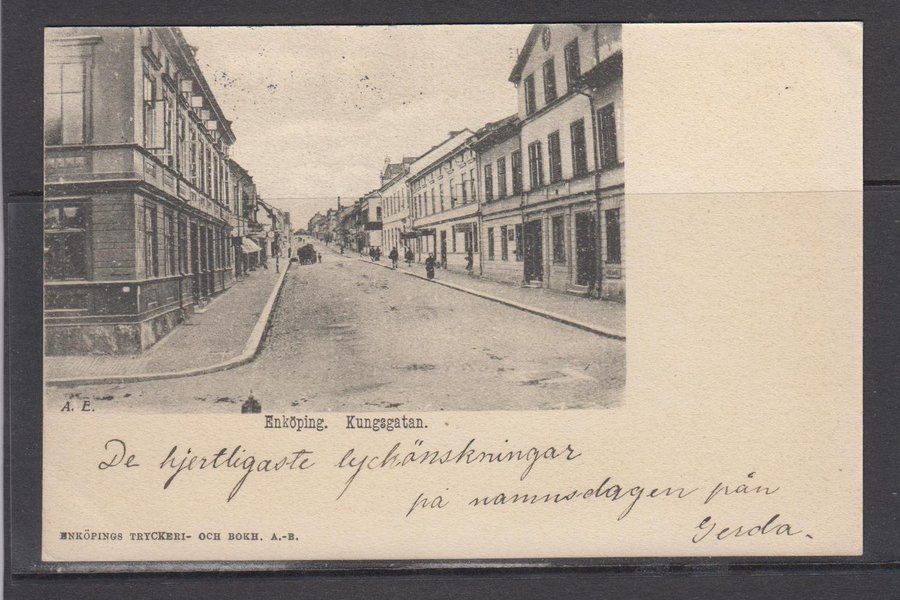 A. E.
Enköping. Kungsgatan.
De hjertligaste lyckönskningar
på namnsdagen från
Gerda.
ENKÖPINGS TRYCKERI- OCH BOKH. A.-B.